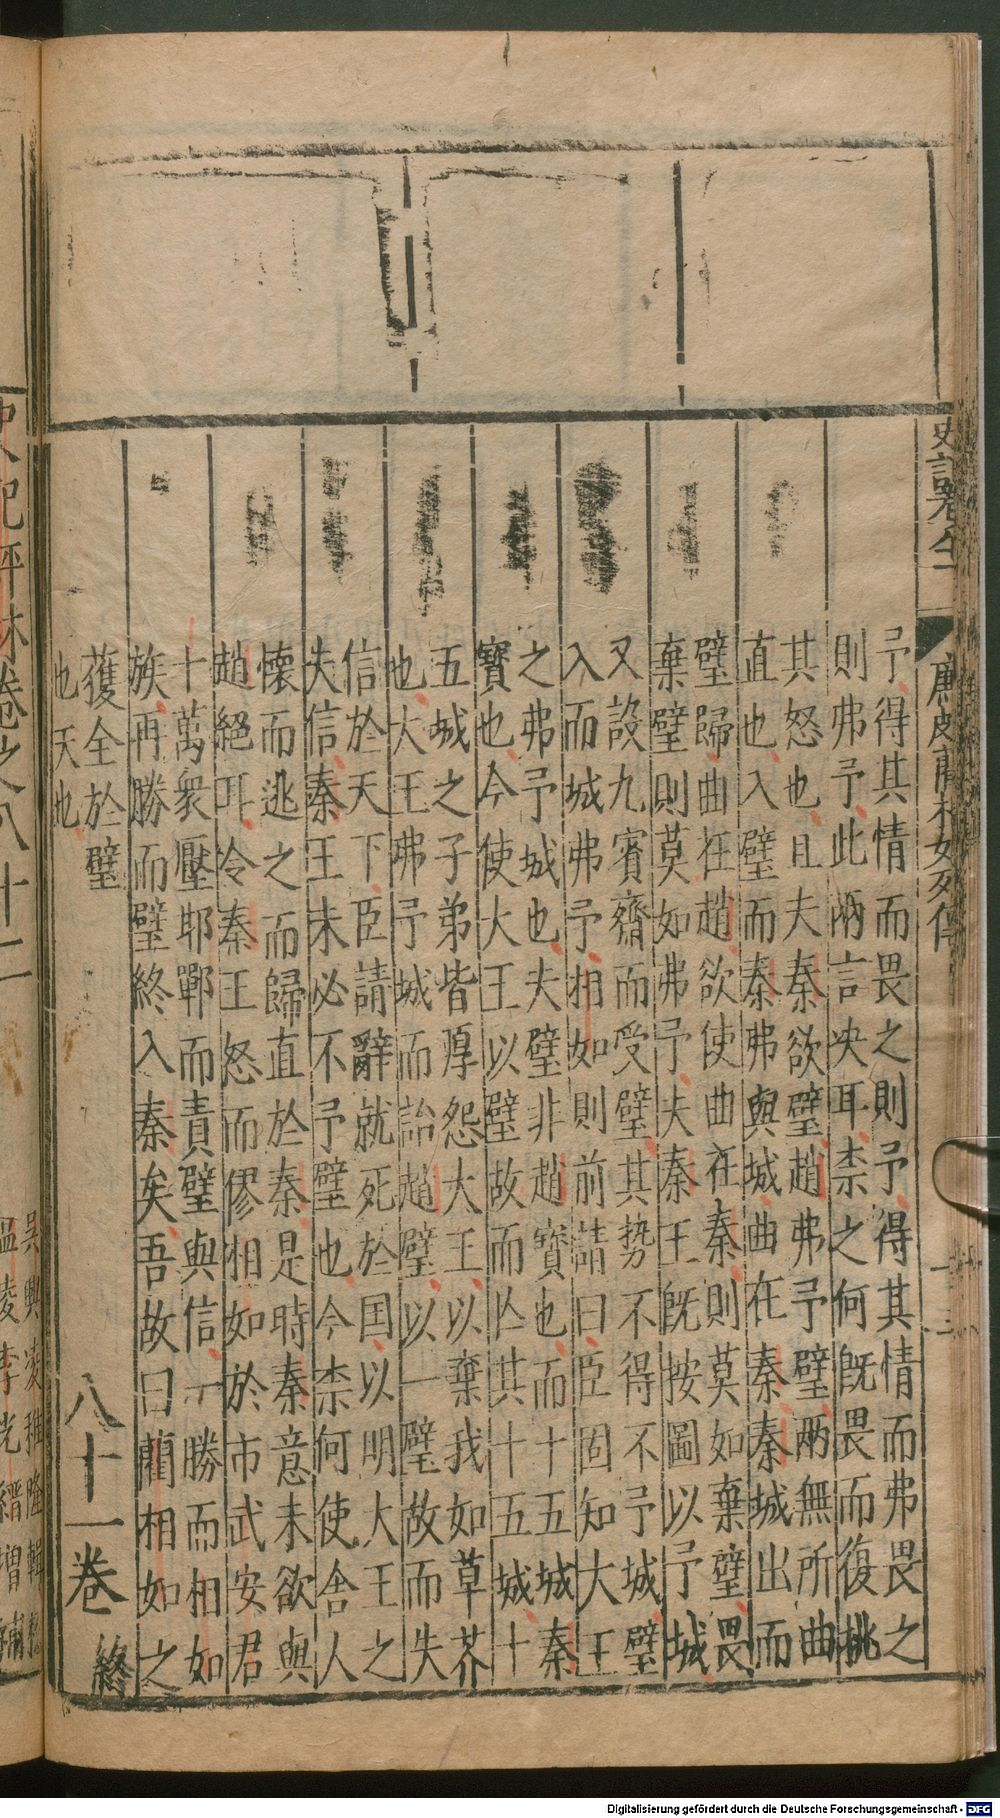 史記卷八十一 廉頗藺相如列傳 十三
予得其情而畏之則予得其情而弗畏之
則弗予此兩言央耳柰之何既畏而復挑
其怒也且夫秦欲璧趙弗予璧兩無所曲
直也入璧而秦弗與城曲在秦秦城出而
璧歸曲在趙欲使曲在秦則莫如棄璧畏
棄璧則莫如弗予夫秦王既按圖以予城
又設九賓齋而受璧其势不得不予城璧
入而城弗予相如則前請曰臣固知大王
之弗予城也夫璧非趙寳也而十五城秦
寳也今使大王以璧故而亾其十五城十
五城之子弟皆厚怨大王以棄我如草芥
也大王弗予城而詒趙璧以一璧故而失
信於天下臣請辭就死於囯以明大王之
失信秦王未必不予璧也今柰何使舍人
懷而逃之而歸直於秦是時秦意未欲與
趙絕耳令秦王怒而僇相如於市武安君
十萬衆壓邯鄲而責璧與信一勝而相如
族再勝而璧終入秦矣吾故曰藺相如之
獲全於璧
也天也
八十一卷終
吳興凌稚隆輯校
溫陵李光縉增補
史記評林卷之八十二
Digitalisierung gefördert durch die Deutsche Forschungsgemeinschaft - DFG